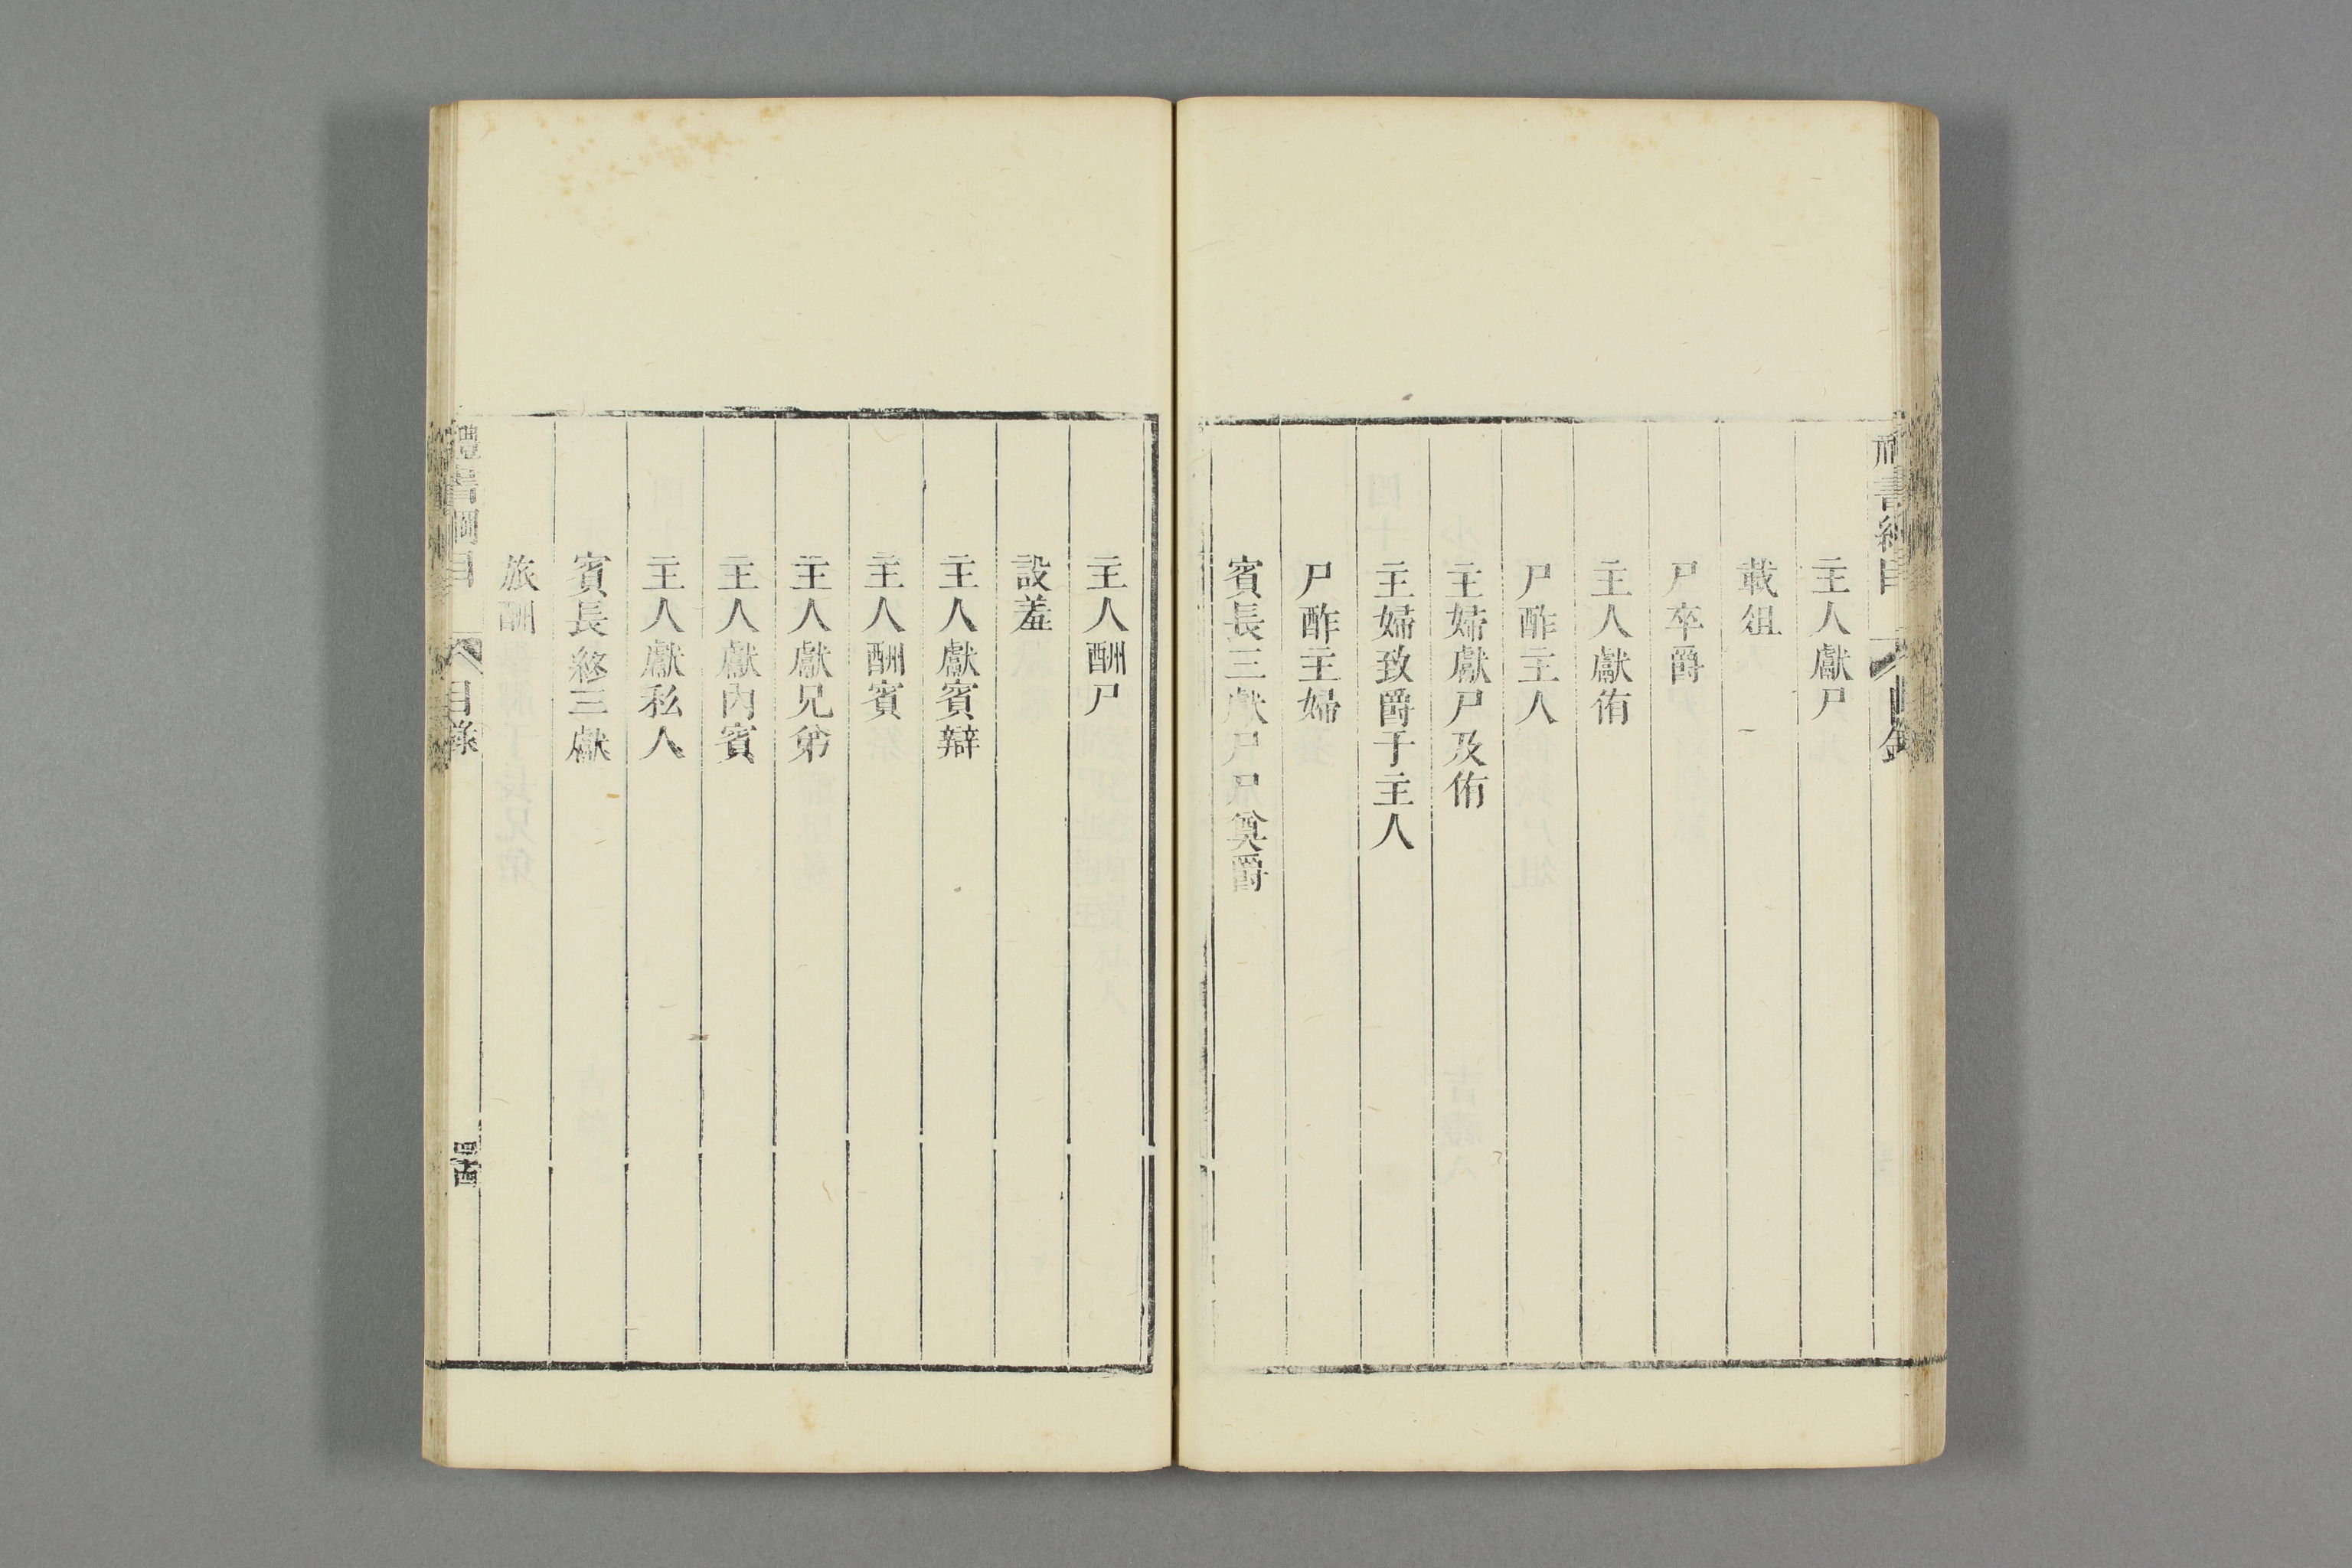 禮書綱目 目錄
主人獻尸
載俎
尸卒爵
主人獻侑
尸酢主人
主婦獻尸及侑
主婦致爵于主人
尸酢主婦
賓長三獻尸尸奠爵
主人酬尸
設羞
主人獻賓辯
主人酬賓
主人獻兄弟
主人獻內賓
主人獻私人
賓長終三獻
旅酬
禮書綱目 目錄